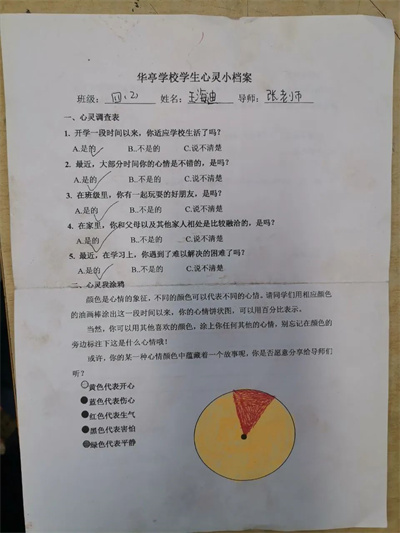 华亭学校学生心灵小档案
班级：四.(2) 姓名：王海迪 导师：张老师
一、心灵调查表
1. 开学一段时间以来，你适应学校生活了吗？
A.是的 B..不是的 C.说不清楚
2. 最近，大部分时间你的心情是不错的，是吗？
A.是的 B..不是的 C.说不清楚
3. 在班级里，你有一起玩耍的好朋友，是吗？
A.是的 B..不是的 C.说不清楚
4. 在家里，你和父母以及其他家人相处是比较融洽的，是吗？
A.是的 B..不是的 C.说不清楚
5. 最近，在学习上，你遇到了难以解决的困难了吗？
A.是的 B..不是的 C.说不清楚
二、心灵我涂鸦
颜色是心情的象征，不同的颜色可以代表不同的心情。请同学们用相应颜色
的油画棒涂出这一段时间以来，你的心情饼状图，可以用百分比表示。
当然，你可以用其他喜欢的颜色，涂上你任何其他的心情，别忘记在颜色的
旁边标注下这是什么心情哦！
或许，你的某一种心情颜色中蕴藏着一个故事呢，你是否愿意分享给导师们
听？
黄色代表开心
蓝色代表伤心
红色代表生气
黑色代表害怕
绿色代表平静